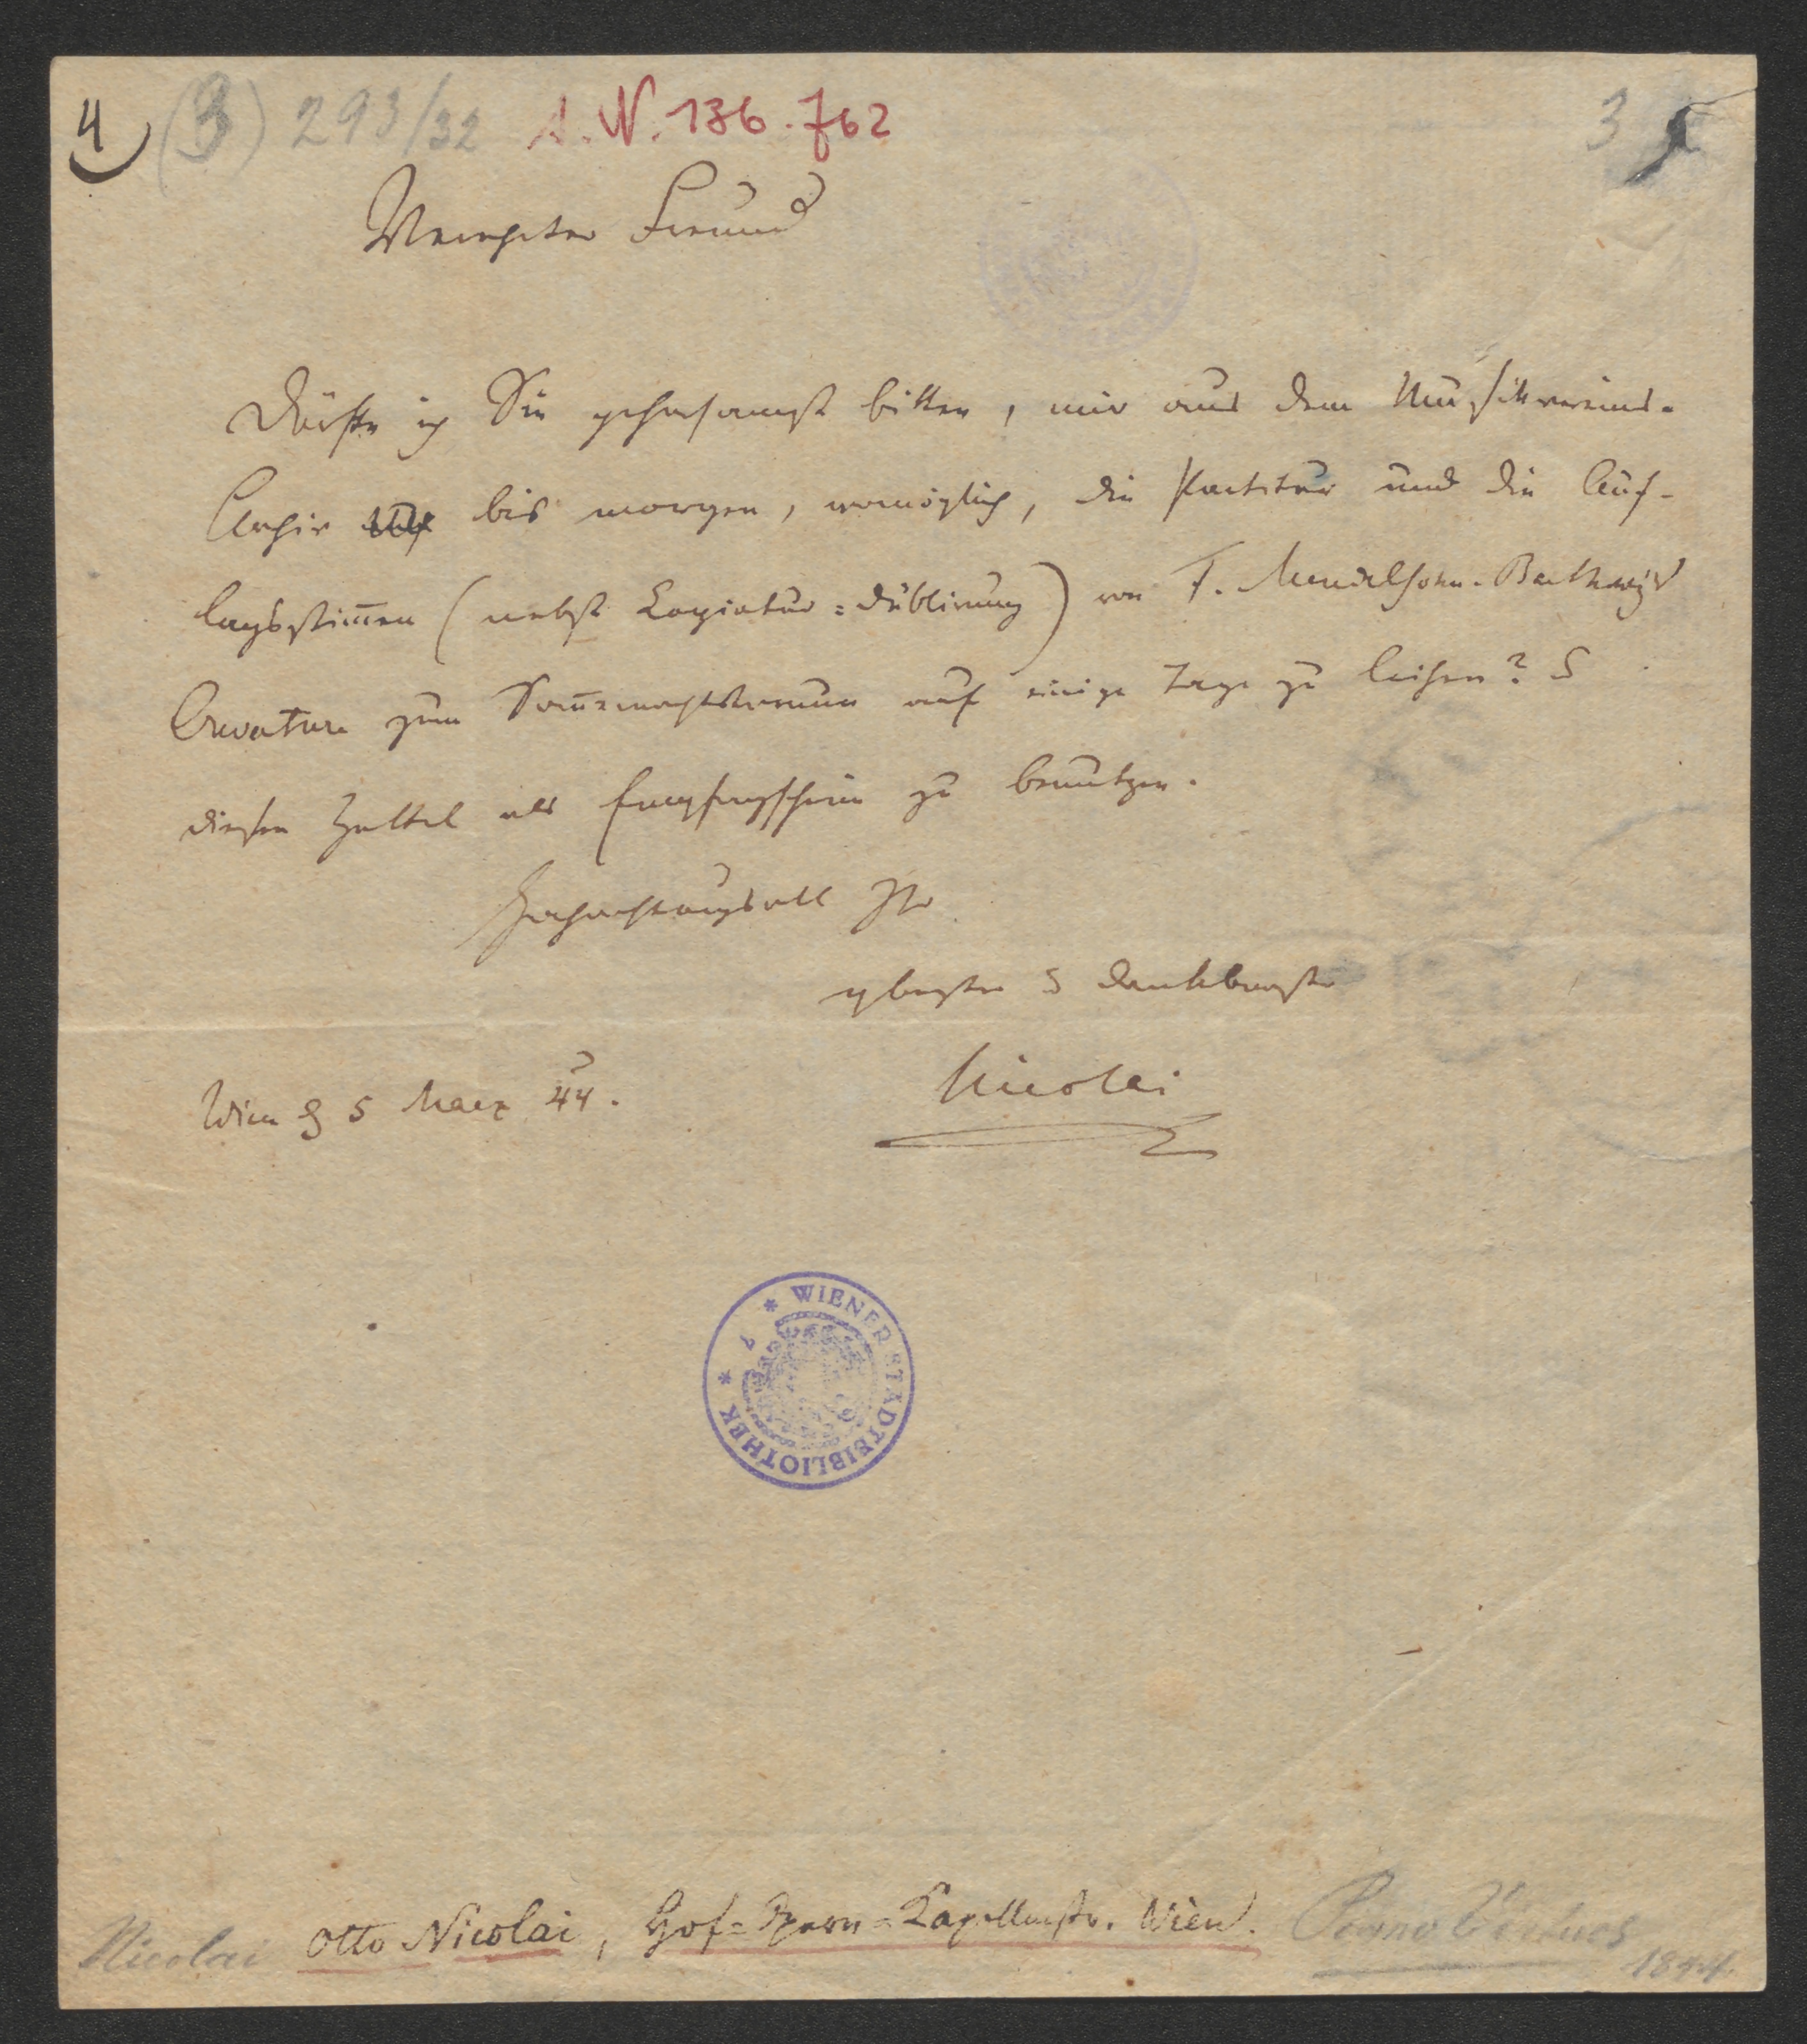 4) (3) 293/32 I.N. 136.762 3
Verehrter Freund
Dürfte ich Sie gehorsamst bitten, mir aus dem Musikvereins-
Archiv bis morgen, womöglich, die Partitur und die Auf-
lagsstim̄en (nebst Harmonie-Dublirung) von F. Mendelsohn-Bartholdy's
Ouverture zum Som̄ernachtstraum auf einige Tage zu leihen? &
diesen Zettel als Empfangschein zu benutzen.
Hochachtungsvoll Ihr
ergebenster & dankbarster
Nicolai
Wien d 5 Maerz 44.
* WIENER STADTBIBLIOTHEK *
Nicolai Otto Nicolai, Hof=Opern=Kapellmstr. Wien.
1844.